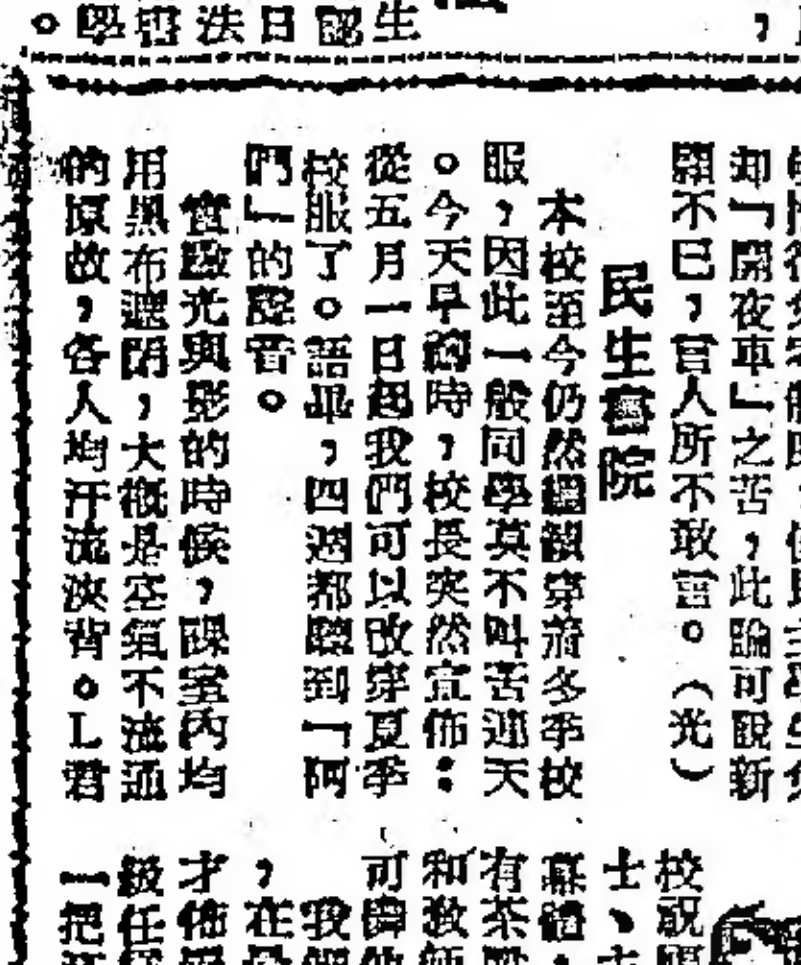 生認日法習學。
却「開夜車」之苦,此論可說新
穎不已,嘗人所不敢嘗。(光)
民生書院
本校至今仍然繼續穿着冬季校
服,因此一般同學莫不叫苦連天
。今天早的時,校長突然宣佈:
從五月一日起我們可以改穿夏季
校服了。語畢,四週都聽到「阿
們」的聲音。
實驗光與影的時候,課室內均
用黑布遮閉,大概是空氣不流通
的原故,各人均汗流浹背。L君
校祝
士、
幕禮,
有茶
和教師
可
我
,在
才佈
級任
一把